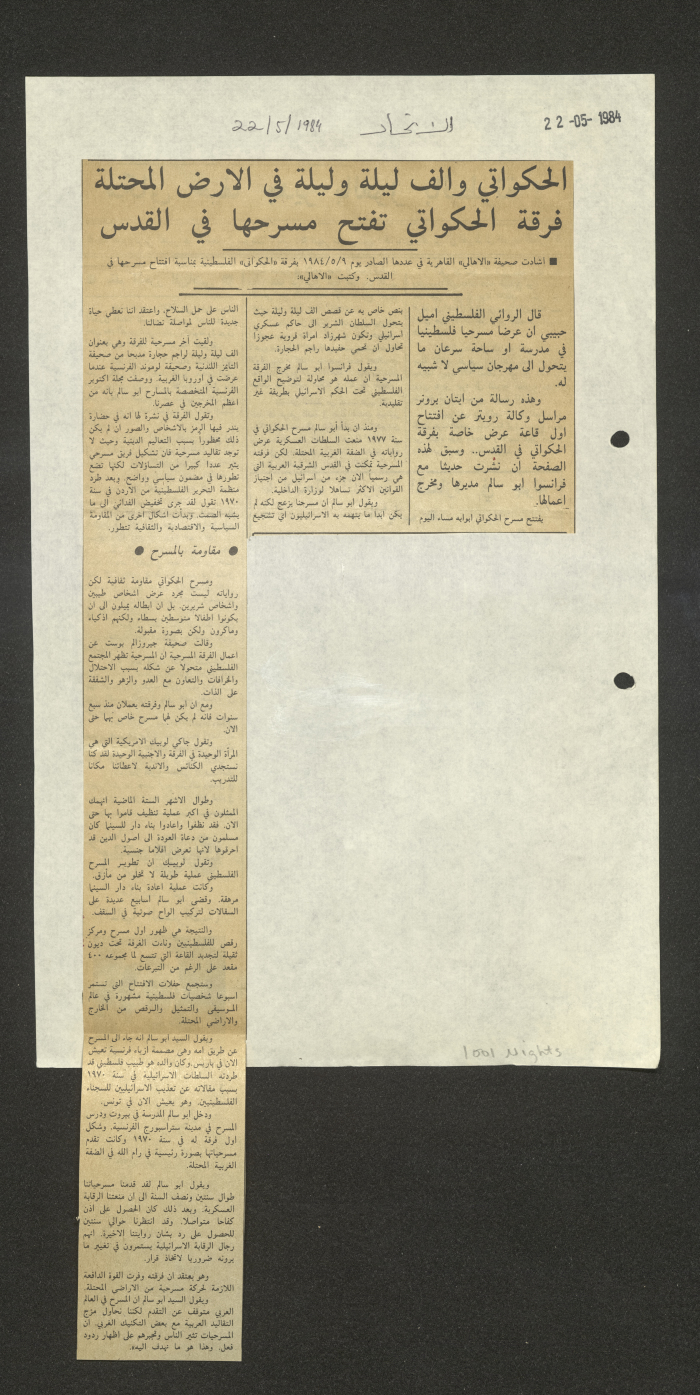 22/5/1984
الاتحاد
22-05-1984
الحكواتي والف ليلة وليلة في الارض المحتلة
فرقة الحكواتي تفتح مسرحها في القدس
■ اشادت صحيفة «الاهالي» القاهرية في عددها الصادر يوم ١٩٨٤/٥/٩ بفرقة «الحكواتي» الفلسطينية بمناسبة افتتاح مسرحها في
القدس. وكتبت «الاهالي»:
قال الروائي الفلسطيني اميل
حبيبي ان عرضا مسرحيا فلسطينيا
في مدرسة او ساحة سرعان ما
يتحول الى مهرجان سياسي لا شبيه
له.
وهذه رسالة من ايتان برونر
مراسل وكالة رويتر عن افتتاح
اول قاعة عرض خاصة بفرقة
الحكواتي في القدس.. وسبق لهذه
الصفحة ان نشرت حديثا مع
فرانسوا ابو سالم مديرها ومخرج
اعمالها.
يفتتح مسرح الحكواتي ابوابه مساء اليوم
بنص خاص به عن قصص الف ليلة وليلة حيث
يتحول السلطان الشرير الى حاكم عسكري
اسرائيلي وتكون شهرزاد امرأة قروية عجوزا
تحاول ان تحمي حفيدها راجم الحجارة.
ويقول فرانسوا ابو سالم مخرج الفرقة
المسرحية ان عمله هو محاولة لتوضيح الواقع
الفلسطيني تحت الحكم الاسرائيلي بطريقة غير
تقليدية.
ومنذ ان بدأ ابو سالم مسرح الحكواتي في
سنة ١٩٧٧ منعت السلطات العسكرية عرض
رواياته في الضفة الغربية المحتلة. لكن فرقته
المسرحية تمكنت في القدس الشرقية العربية التي
هي رسميا الان جزء من اسرائيل من اجتياز
القوانين الاكثر تساهلا لوزارة الداخلية.
ويقول ابو سالم ان مسرحنا يزعج لكنه لم
يكن ابدا ما يتهمه به الاسرائيليون اي تشجيع
الناس على حمل السلاح. واعتقد اننا نعطي حياة
جديدة للناس لمواصلة نضالنا.
ولقيت اخر مسرحية للفرقة وهي بعنوان
الف ليلة وليلة لراجم حجارة مديحا من صحيفة
التايمز اللندنية وصحيفة لوموند الفرنسية عندما
عرضت في اوروبا الغربية. ووصفت مجلة اكتوبر
الفرنسية المتخصصة بالمسارح ابو سالم بانه من
اعظم المخرجين في عصرنا.
وتقول الفرقة في نشرة لها انه في حضارة
يندر فيها الرمز بالاشخاص والصور ان لم يكن
ذلك محظورا بسبب التعاليم الدينية وحيث لا
توجد تقاليد مسرحية فان تشكيل فريق مسرحي
يثير عددا كبيرا من التساؤلات لكنها تضع
تطورها في مضمون سياسي وواضح. وبعد طرد
منظمة التحرير الفلسطينية من الاردن في سنة
١٩٧٠ تقول لقد جرى تخفيض القتال الى ما
يشبه الصمت. وبدأت اشكال اخرى من المقاومة
السياسية والاقتصادية والثقافية تتطور.
● مقاومة بالمسرح ●
ومسرح الحكواتي مقاومة ثقافية لكن
رواياته ليست مجرد عرض اشخاص طيبين
واشخاص شريرين. بل ان ابطاله يميلون الى ان
يكونوا اطفالا متوسطين بسطاء ولكنهم اذكياء
وماكرون ولكن بصورة مقبولة.
وقالت صحيفة جيروزالم بوست عن
اعمال الفرقة المسرحية ان المسرحية تظهر المجتمع
الفلسطيني متحولا عن شكله بسبب الاحتلال
والخرافات والتعاون مع العدو والزهو والشفقة
على الذات.
ومع ان ابو سالم وفرقته يعملان منذ سبع
سنوات فانه لم يكن لهما مسرح خاص بهما حتى
الان.
وتقول جاكي لوبيك الامريكية التي هي
المرأة الوحيدة في الفرقة والاجنبية الوحيدة لقد كنا
نستجدي الكنائس والاندية لاعطائنا مكانا
للتدريب.
وطوال الاشهر الستة الماضية انهمك
الممثلون في اكبر عملية تنظيف قاموا بها حتى
الان. فقد نظفوا واعادوا بناء دار للسينما كان
مسلمون من دعاة العودة الى اصول الدين قد
احرقوها لانها تعرض افلاما جنسية.
وتقول لوبيسك ان تطوير المسرح
الفلسطيني عملية طويلة لا تخلو من مآزق.
وكانت عملية اعادة بناء دار السينما
مرهقة. وقضى ابو سالم اسابيع عديدة على
السقالات لتركيب الواح صوتية في السقف.
والنتيجة هي ظهور اول مسرح ومركز
رقص للفلسطينيين وناءت الفرقة تحت ديون
ثقيلة لتجديد القاعة التي تتسع لما مجموعه ٤٠٠
مقعد على الرغم من التبرعات.
وستجمع حفلات الافتتاح التي تستمر
اسبوعا شخصيات فلسطينية مشهورة في عالم
الموسيقى والتمثيل والرقص من الخارج
والاراضي المحتلة.
ويقول السيد ابو سالم انه جاء الى المسرح
عن طريق امه وهي مصممة ازياء فرنسية تعيش
الان في باريس وكان والده هو طبيب فلسطيني قد
طردته السلطات الاسرائيلية في سنة ١٩٧٠
بسبب مقالاته عن تعذيب الاسرائيليين للسجناء
الفلسطينيين. وهو يعيش الان في تونس.
ودخل ابو سالم المدرسة في بيروت ودرس
المسرح في مدينة ستراسبورج الفرنسية. وشكل
اول فرقة له في سنة ١٩٧٠ وكانت تقدم
مسرحياتها بصورة رئيسية في رام الله في الضفة
الغربية المحتلة.
ويقول ابو سالم لقد قدمنا مسرحياتنا
طوال سنتين ونصف السنة الى ان منعتنا الرقابة
العسكرية. وبعد ذلك كان الحصول على اذن
كفاحا متواصلا. وقد انتظرنا حوالي سنتين
للحصول على رد بشأن روايتنا الاخيرة. انهم
رجال الرقابة الاسرائيلية يستمرون في تغيير ما
يرونه ضروريا لاتخاذ قرار.
وهو يعتقد ان فرقته وفرت القوة الدافعة
اللازمة لحركة مسرحية من الاراضي المحتلة.
ويقول السيد ابو سالم ان المسرح في العالم
العربي متوقف عن التقدم لكننا نحاول مزج
التقاليد العربية مع بعض التكنيك الغربي. ان
المسرحيات تثير الناس وتجبرهم على اظهار ردود
فعل. وهذا هو ما نهدف اليه».
1001 Nights